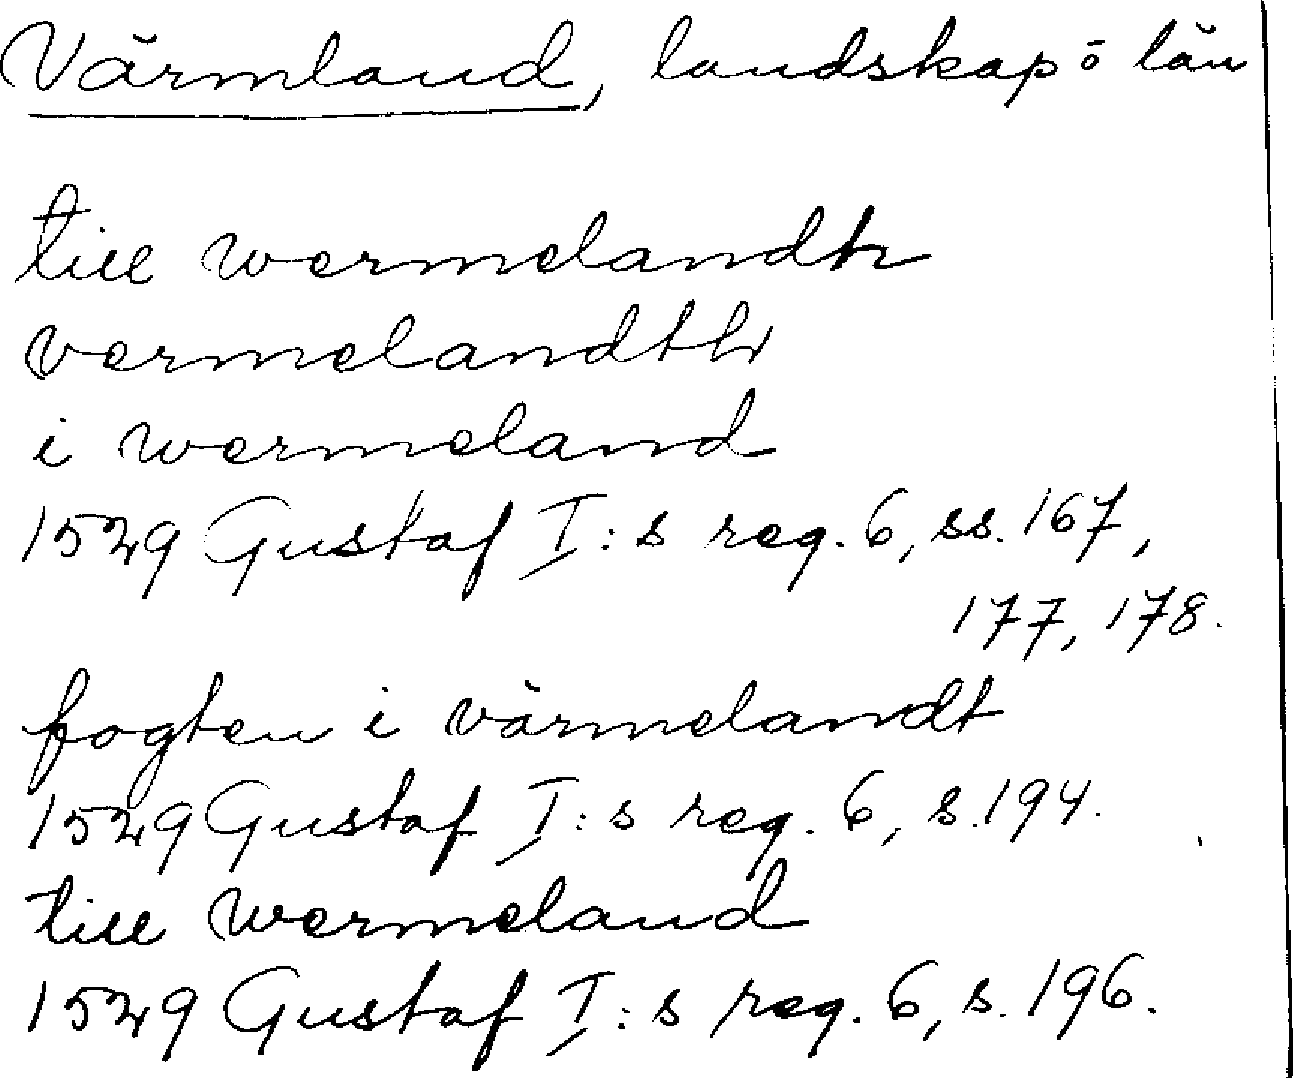 Värmland, landskap ō län
till wermelandh
vermelandth
i wermeland
1529 Gustaf I:s reg. 6, ss. 167,
177, 178.
fogten i värmelandt
1529 Gustaf I:s reg. 6, s. 194.
till wermeland
1529 Gustaf I:s reg. 6, s. 196.